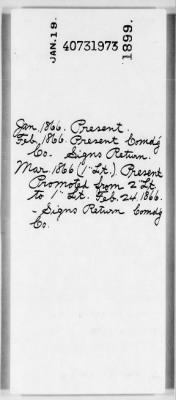 JAN.19.
40731973
1899.
Jan. 1866. Present.
Feb. 1866. Present Comd'g
Co. - Signs Return.
Mar. 1866 (1" Lt.) Present
Promoted from 2" Lt.
to 1" Lt. Feb. 24, 1866.
- Signs Return Comd'g
Co.